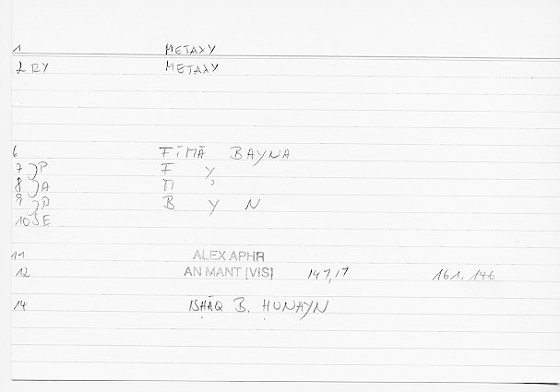 1 METAXY
2 RY METAXY
6 FĪMĀ BAYNA
7 P F Y
8 A M
9 D B Y N
10 E
11 ALEX APHR
12 AN MANT [VIS] 147,17 161. 146
14 ISḤĀQ B. ḤUNAYN